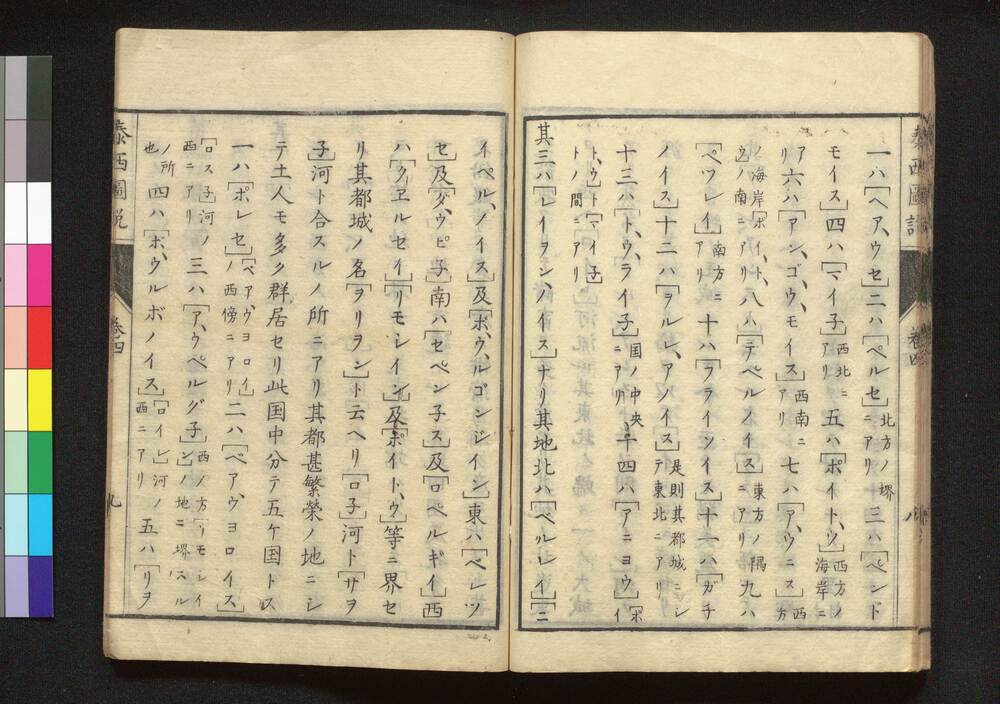 泰西圖説 卷四 八
一ハ［ヘア、ウセ］二ハ［ペルセ］北方ノ堺ニアリ三ハ［ペンド
モイス］四ハ［マイ子］西北ニアリ五ハ［ポイト、ツ］西方ノ海岸ニ
アリ六ハ［アン、ゴウ、モイス］西南ニアリ七ハ［ア、ウニス］西方
ノ海岸［ポイ、ト、ウ］ノ南ニアリ八ハ［テペルメイス］東方ノ隅ニアリ九ハ
［ペツレイ］南方ニアリ十ハ［ララインソイス］十一ハ［ガチ
ノイス］十二ハ［ヲルレ、アノイス］是則其郡城ニシテ東北ニアリ
十三ハ［ト、ウ、ライ子］国ノ中央ニアリ十四ハ［アニヨウ］［ホイ
ト、ウ］ト［マイ子］トノ間ニアリ
其三ハ［レイヲン、ノイス］ナリ其地北ハ［ペルレイ］［ニ
イペル、ノイス］及［ボ、ウ、ルゴンジイン］東ハ［ペレツ
セ］及［ダ、ウピ子］南ハ［セペン子ス］及［ロペルギイ］西
ハ［クヱルセイ］［リモシイン］及［ポイト、ウ］等ニ界セ
リ其都城ノ名［ヲリヲン］ト云ヘリ［ロ子］河ト［サヲ
子］河ト合スルノ所ニアリ其都甚繁榮ノ地ニシ
テ土人モ多ク群居セリ此国中分テ五ケ国トス
一ハ［ポレセ］［ベア、ウヨロイ］ノ西傍ニアリ二ハ［ベア、ウヨロイス］
［ロス子］河ノ西ニアリ三ハ［ア、ウペルグ子］西ノ方［リモシイン］ノ地ニ堺スル
ノ所也四ハ［ボ、ウルボノイス］［ロイレ］河ノ西ニアリ五ハ［リヲ
泰西圖説 卷四 九